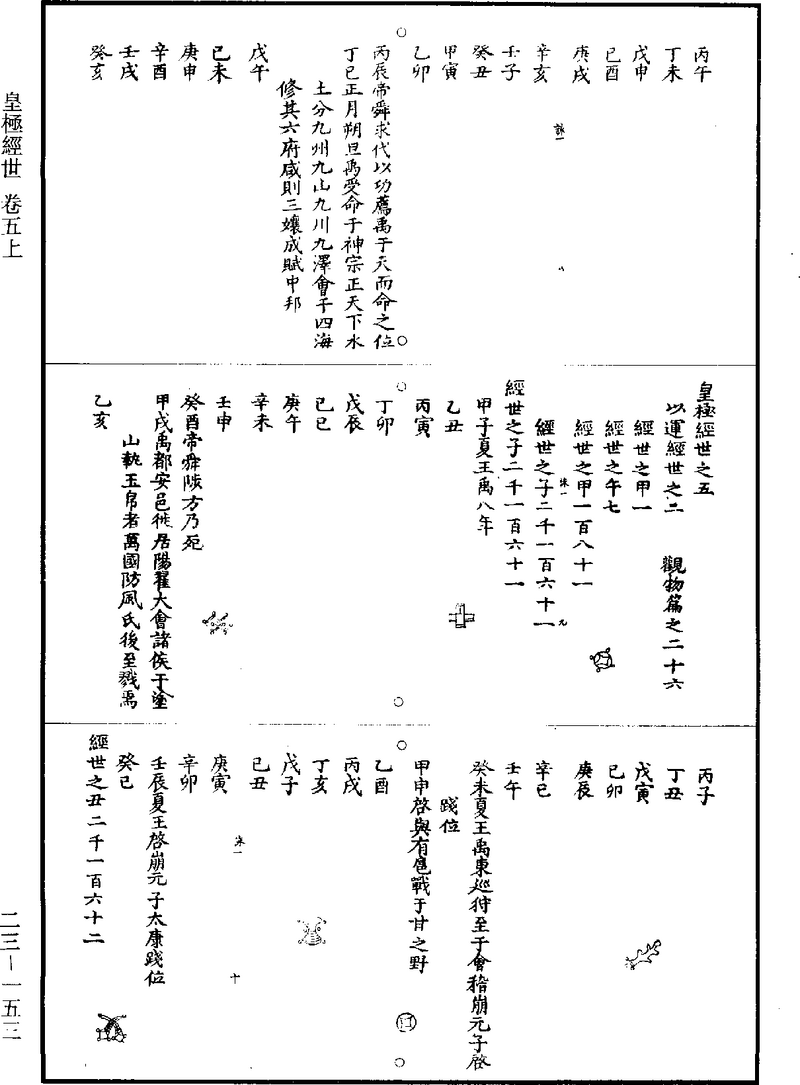 皇極經世 卷五上
丙午
丁未
戊申
己酉
庚戌
辛亥
壬子
癸丑
甲寅
乙卯
丙辰帝舜求代以功薦禹于天而命之位
丁巳正月朔旦禹受命于神宗正天下水
土分九州九山九川九澤會于四海
修其六府咸則三壤成賦中邦
戊午
己未
庚申
辛酉
壬戌
癸亥
皇極經世之五
以運經世之二 觀物篇之二十六
經世之甲一
經世之午七
經世之甲一百八十一
經世之子二千一百六十一
經世之子二千一百六十一
甲子夏王禹八年
乙丑
丙寅
丁卯
戊辰
己巳
庚午
辛未
壬申
癸酉帝舜陟方乃死
甲戌禹都安邑徙居陽翟大會諸侯于塗
山執玉帛者萬國防風氏後至戮焉
乙亥
丙子
丁丑
戊寅
己卯
庚辰
辛巳
壬午
癸未夏王禹東巡狩至于會稽崩元子啓
踐位
甲申啓與有扈戰于甘之野
乙酉
丙戌
丁亥
戊子
己丑
庚寅
辛卯
壬辰夏王啓崩元子太康踐位
癸巳
經世之丑二千一百六十二
二三—一五三